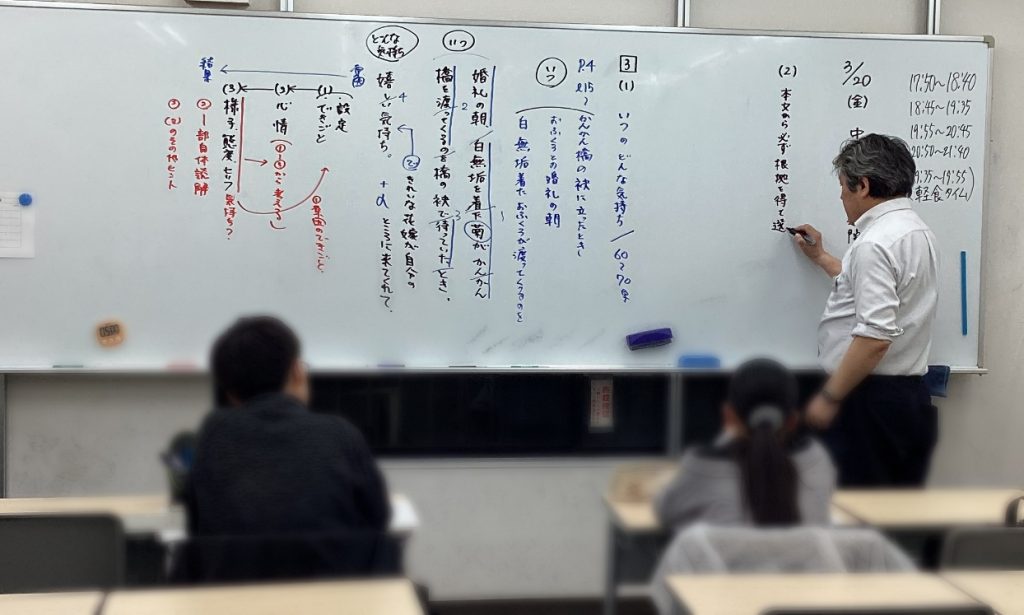 17:50〜18:40
18:45〜19:35
19:55〜20:45
20:50〜21:40
19:35〜19:55
軽食タイム)
3/20
(金)
中
(2)
本文から必ず根拠を得て送
3
(1)
いつのどんな気持ち/60〜70字
P.4
ℓ15〜
かんかん橋の袂に立ったとき
おふくろとの婚礼の朝
いつ
白無垢着たおふくろが渡ってくるのを
いつ
婚礼の朝、白無垢を着た菊がかんかん
橋を渡ってくるのを橋の袂で待っていたとき、
どんな気持ち
きれいな花嫁が自分の
ところに来てくれて、
嬉しい気持ち。
+α
理由
結果
(1)
設定
・できごと
(2)
心情
(3)
様子、態度、セリフ
気持ち?
①直前のできごと
(①〜③から考える)
②一部自体読解
③(2)のその他ヒント